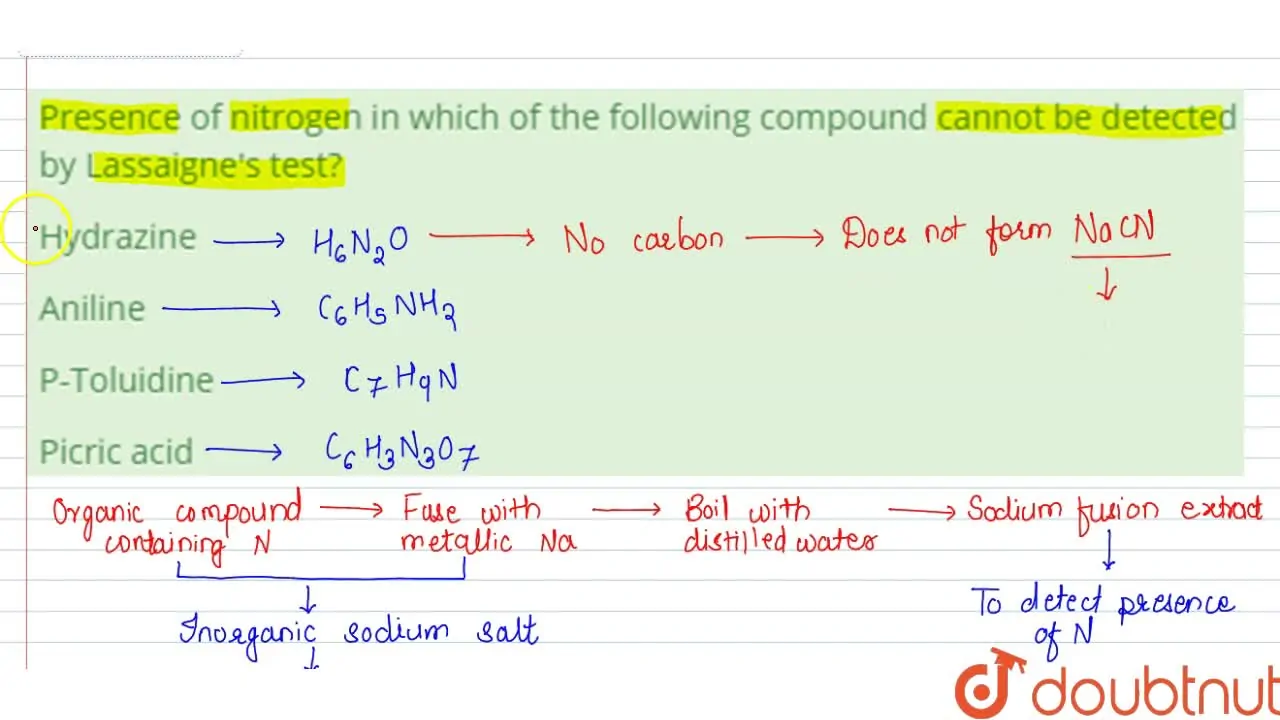 Presence of nitrogen in which of the following compound cannot be detected
by Lassaigne's test?
Hydrazine → H₆N₂O → No carbon → Does not form NaCN
↓
Aniline → C₆H₅NH₂
P-Toluidine → C₇H₉N
Picric acid → C₆H₃N₃O₇
Organic compound containing N → Fuse with metallic Na → Boil with distilled water → Sodium fusion extract
↓ ↓
Inorganic sodium salt To detect presence of N
↓
doubtnut